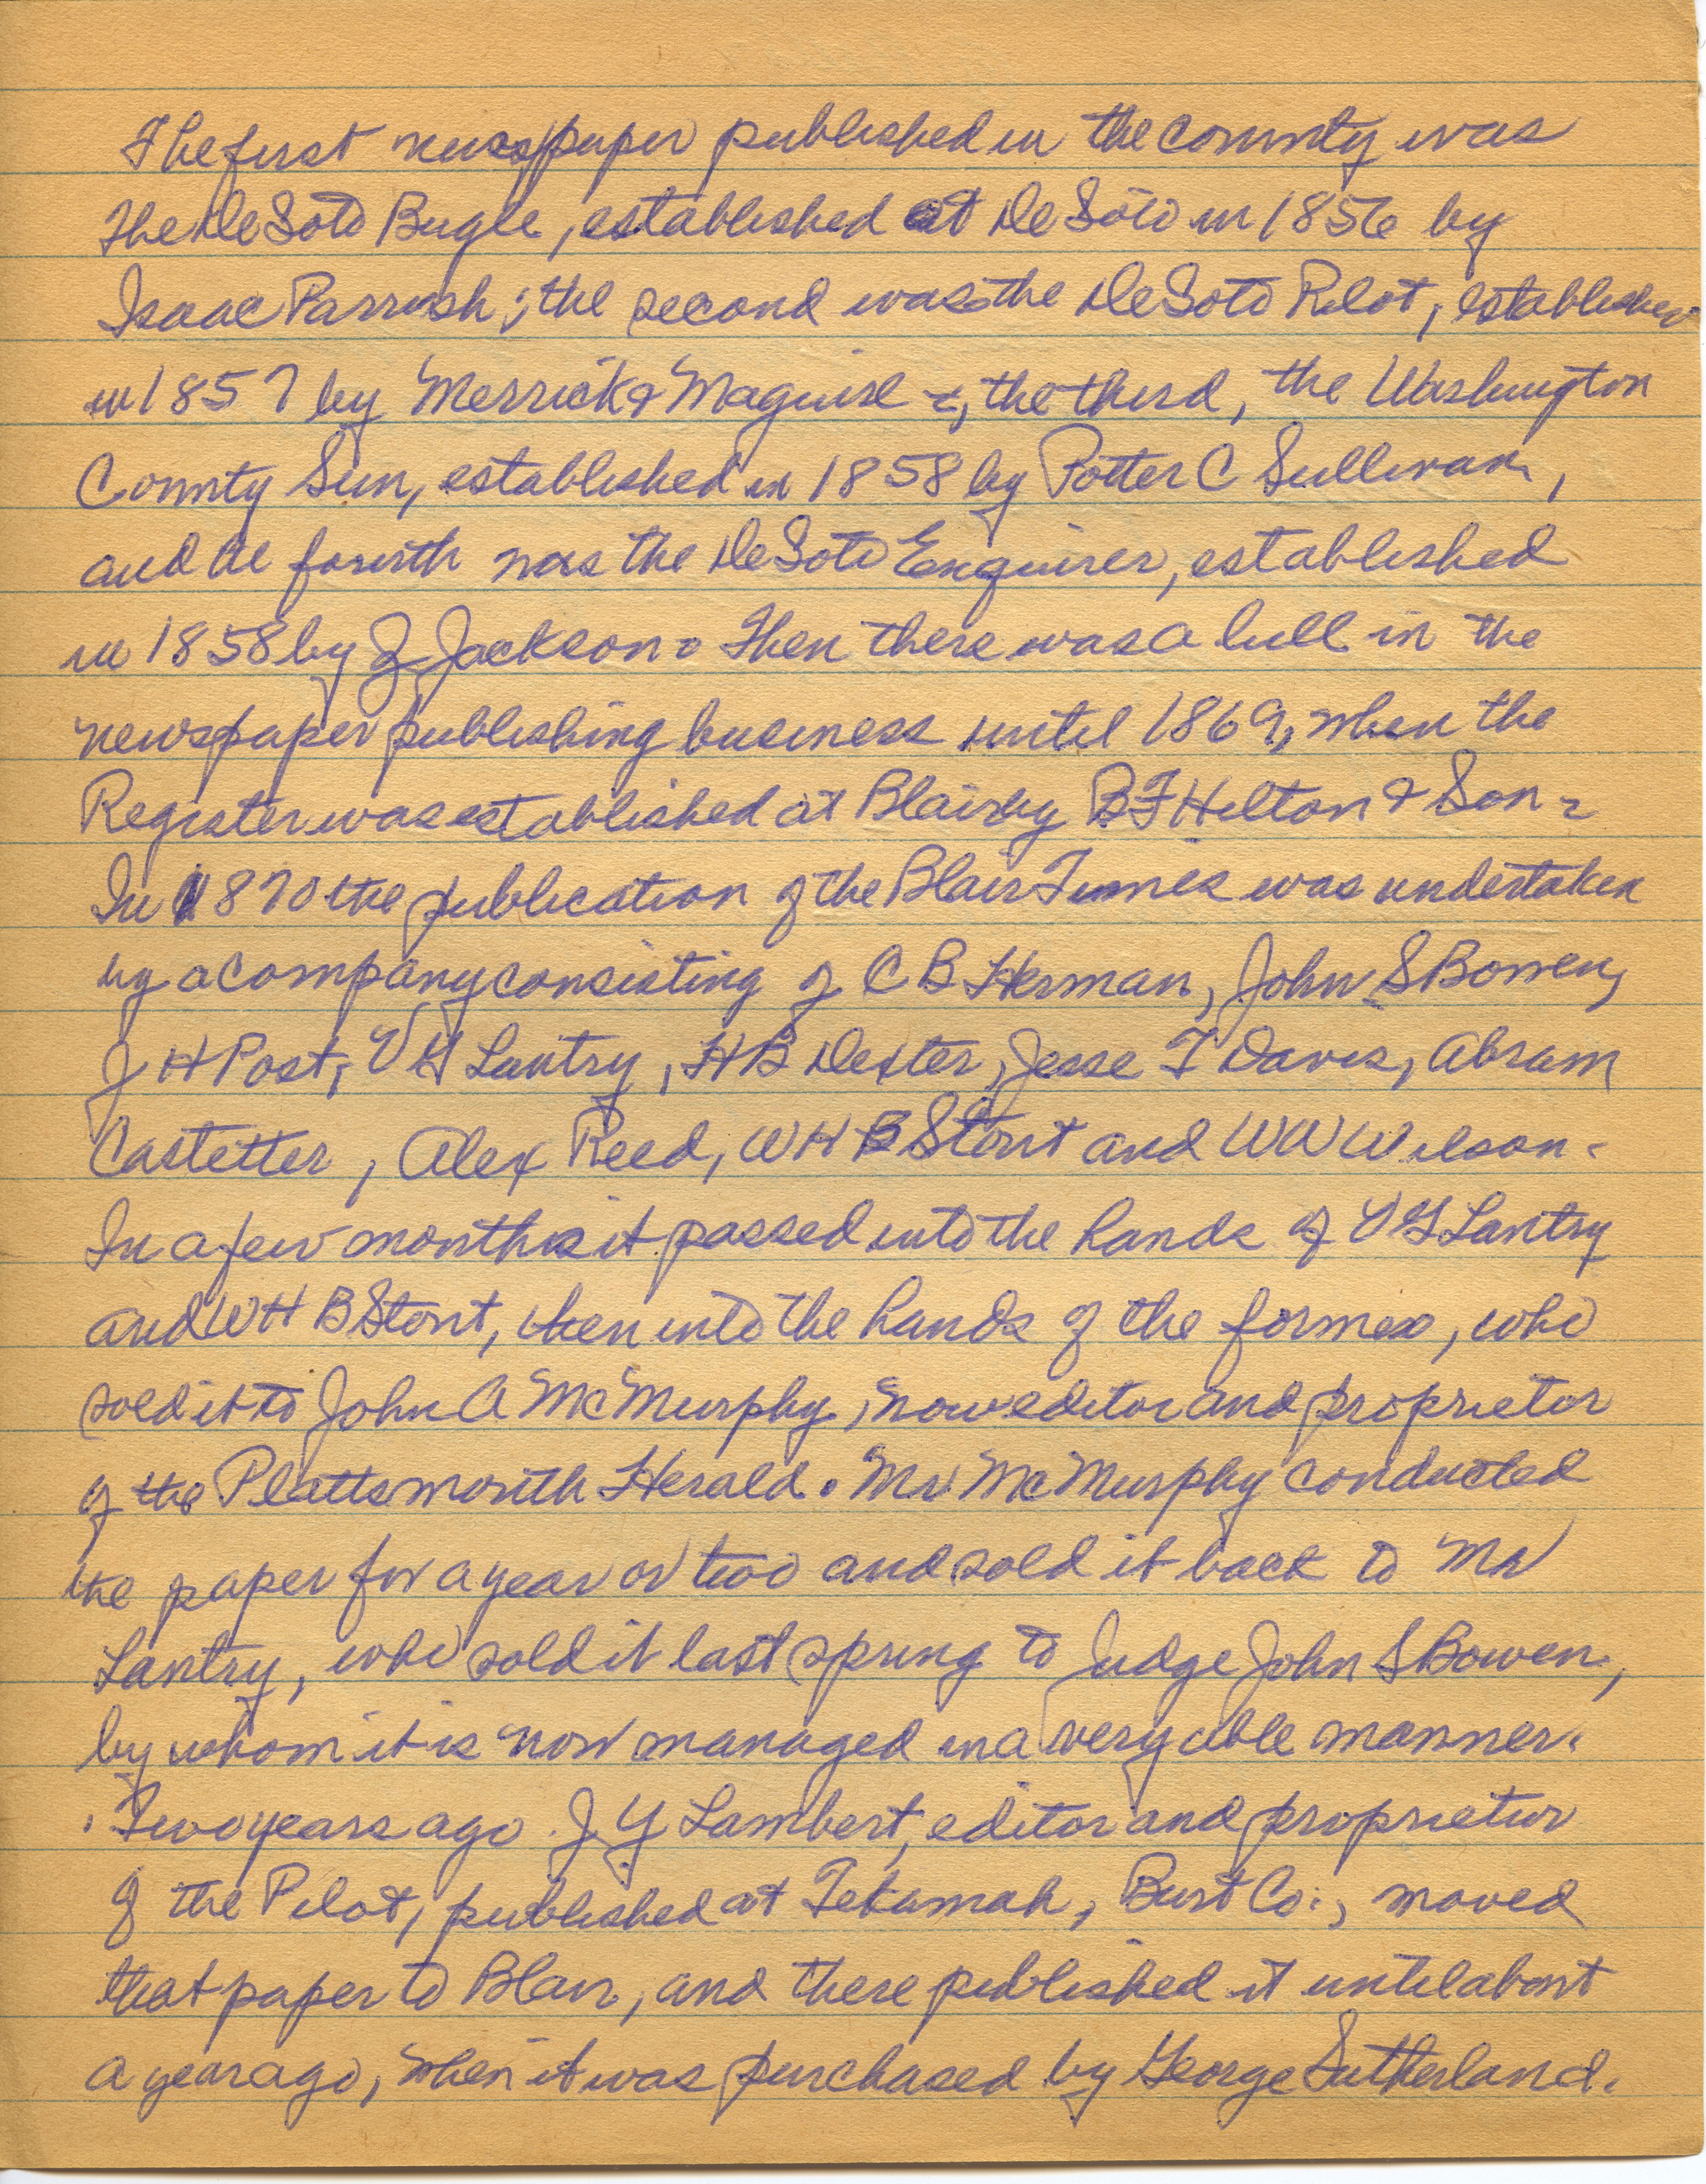 The first newspaper published in the county was
the DeSoto Bugle, established at DeSoto in 1856 by
Isaac Parrish; the second was the DeSoto Pilot, established
in 1857 by Merrick & Maguire; the third, the Washington
County Sun, established in 1858 by Potter C Sullivan,
and the fourth was the DeSoto Enquirer, established
in 1858 by Z Jackson. Then there was a lull in the
newspaper publishing business until 1869, when the
Register was established at Blair by B F Hilton & Son -
In 1870 the publication of the Blair Times was undertaken
by a company consisting of C B Herman, John S Bowen,
J H Post, V G Lantry, H B Dexter, Jesse T Davis, Abram
Castetter, Alex Reed, W H B Stout and W W Wilson -
In a few months it passed into the hands of V G Lantry
and W H B Stout, then into the hands of the former, who
sold it to John A McMurphy, now editor and proprietor
of the Plattsmouth Herald. Mr. McMurphy conducted
the paper for a year or two and sold it back to Mr
Lantry, who sold it last spring to Judge John S Bowen,
by whom it is now managed in a very able manner.
Two years ago J Y Lambert, editor and proprietor
of the Pilot, published at Tekamah, Burt Co., moved
that paper to Blair, and there published it until about
a year ago, when it was purchased by George Sutherland.